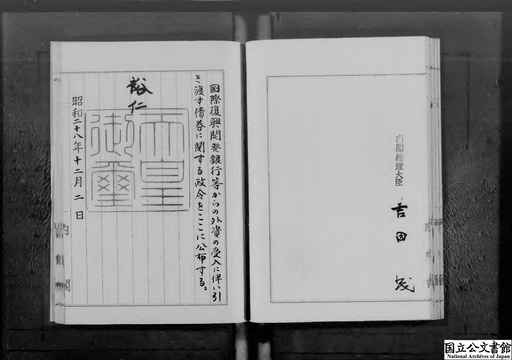 国際復興開発銀行等からの外資の受入に伴い引
き渡す債券に関する政令をここに公布する。
裕仁
天皇御璽
昭和二十八年十二月二日
内閣総理大臣 吉田茂
国立公文書館
National Archives of Japan